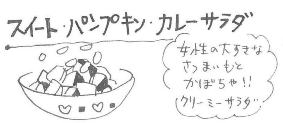 スイート・パンプキン・カレーサラダ
女性の大すきな
さつまいもと
かぼちゃ!!
クリーミーサラダ